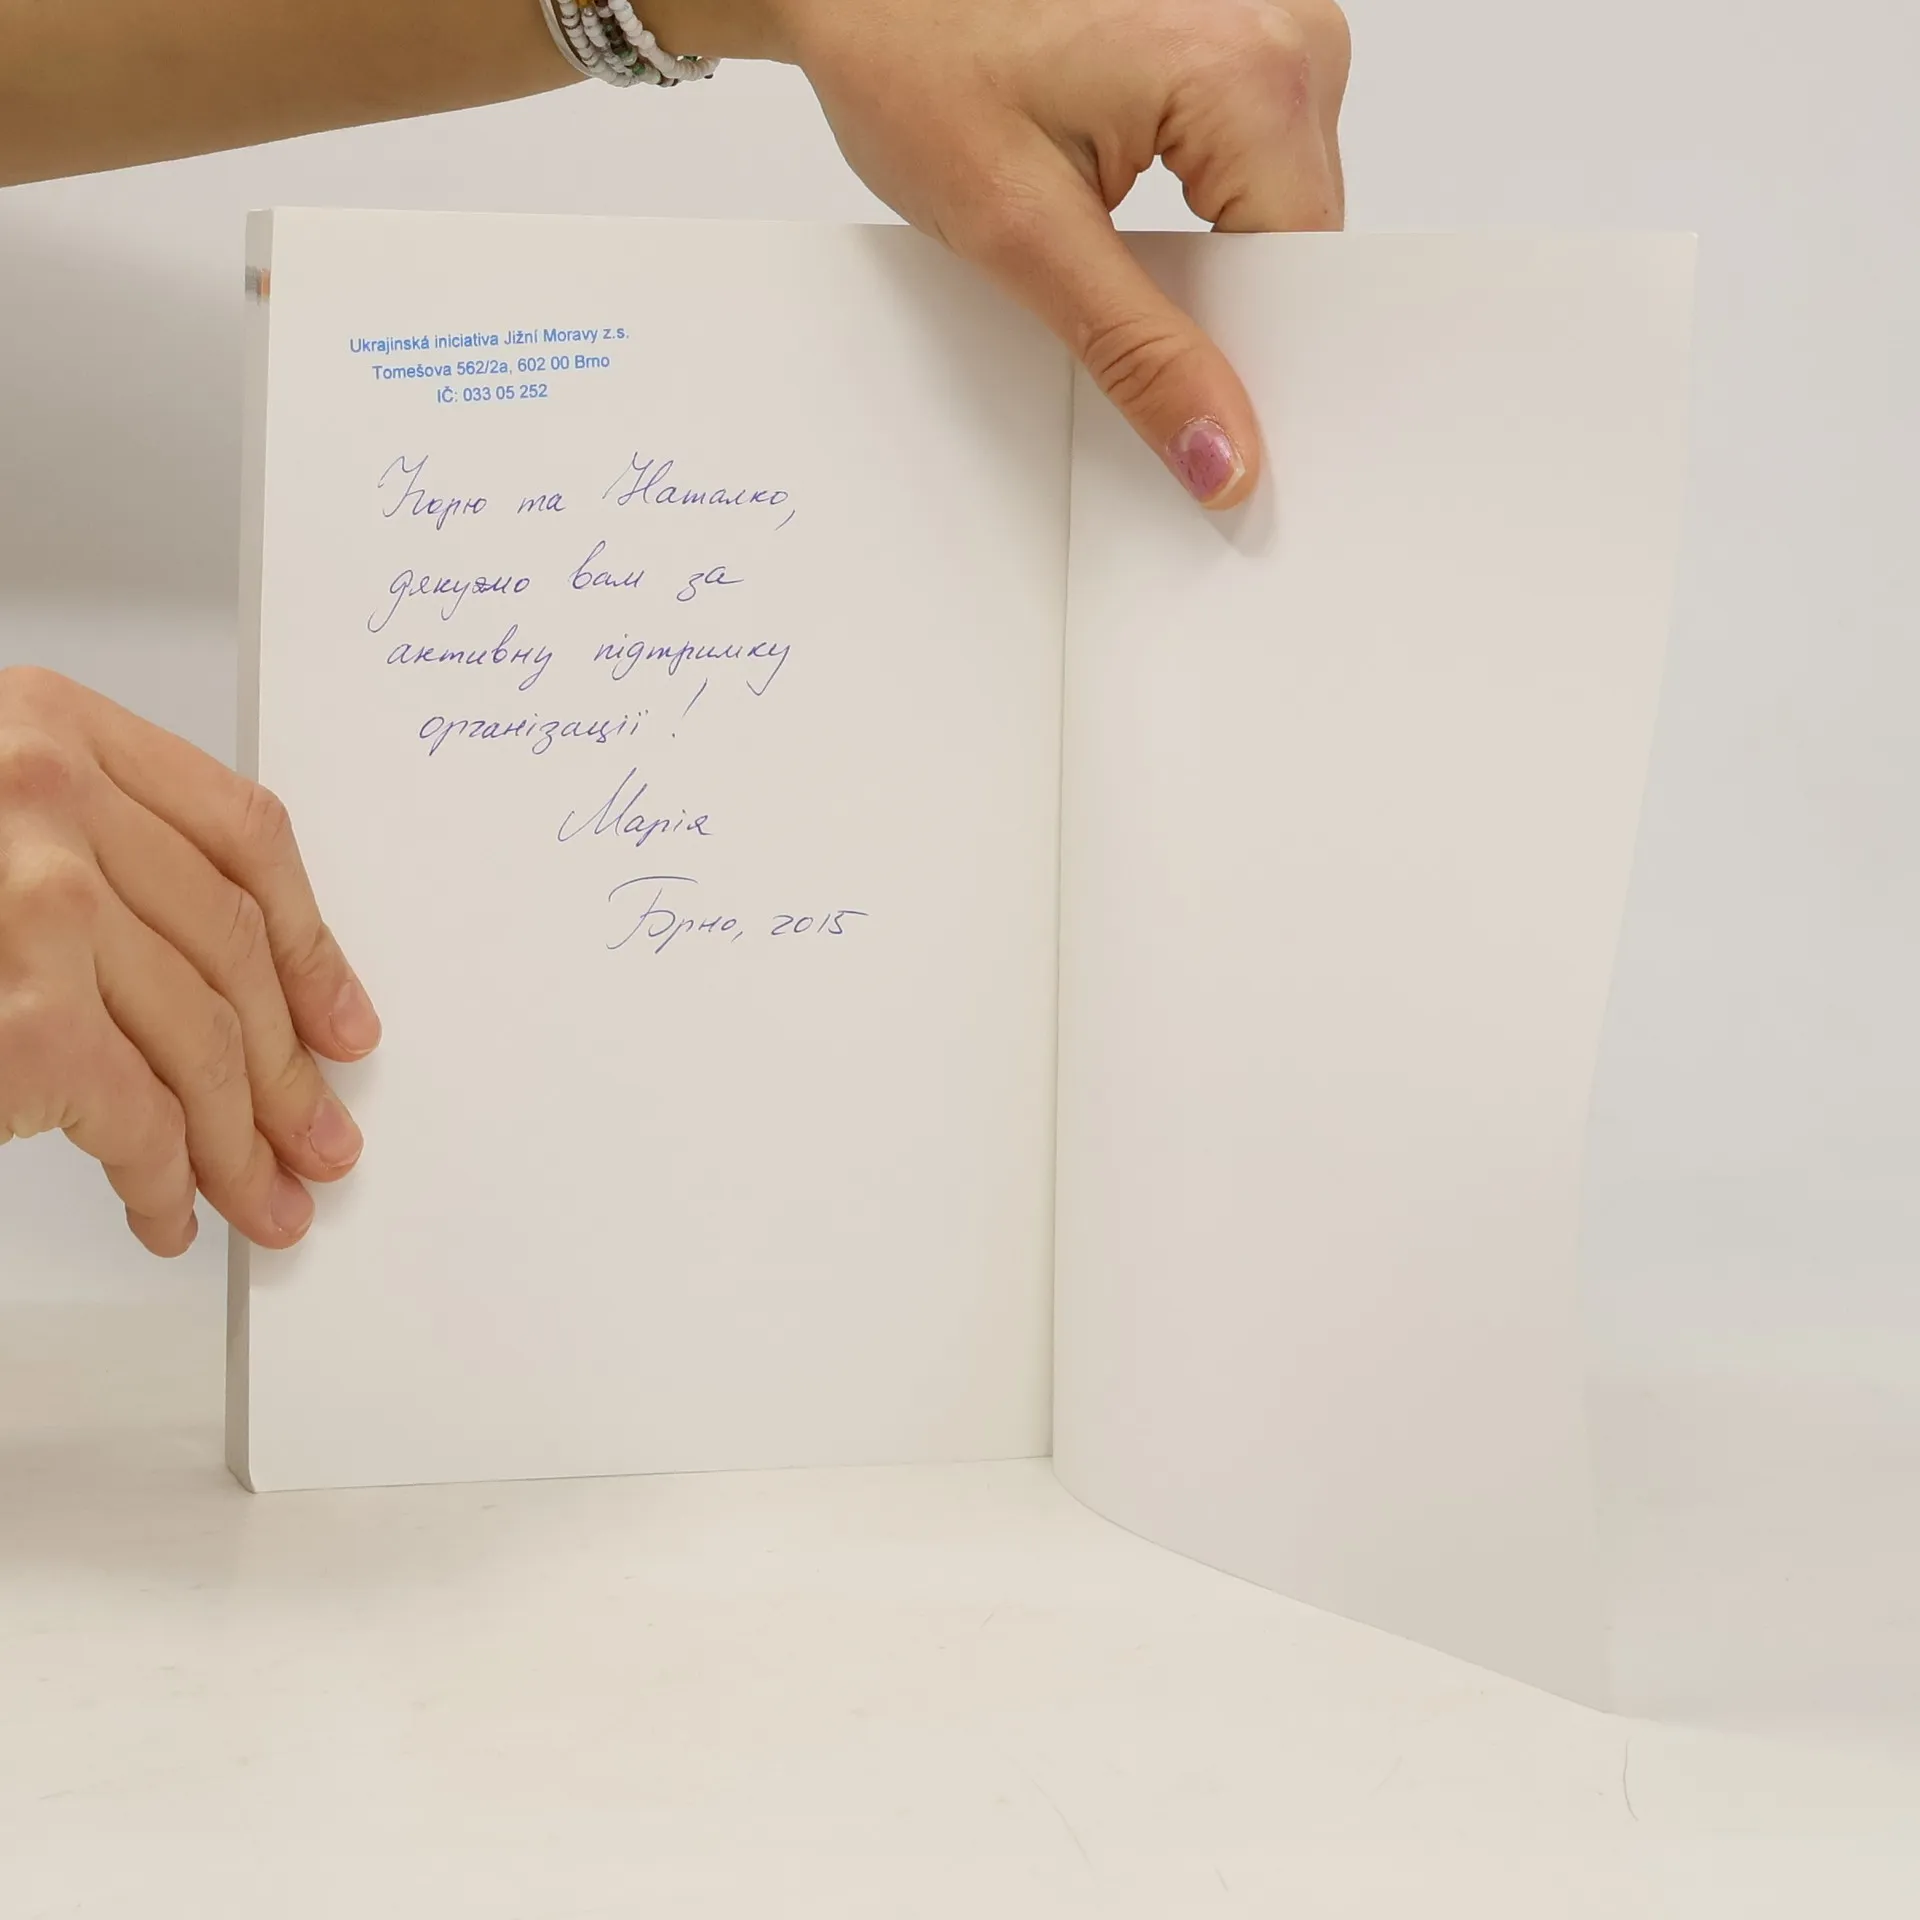 Ukrajinská iniciativa Jižní Moravy z.s.
Tomešova 562/2a, 602 00 Brno
IČ: 033 05 252
та Наталко,
дякуємо вам за
активну підтримку
організації!
Марія
Брно, 2015